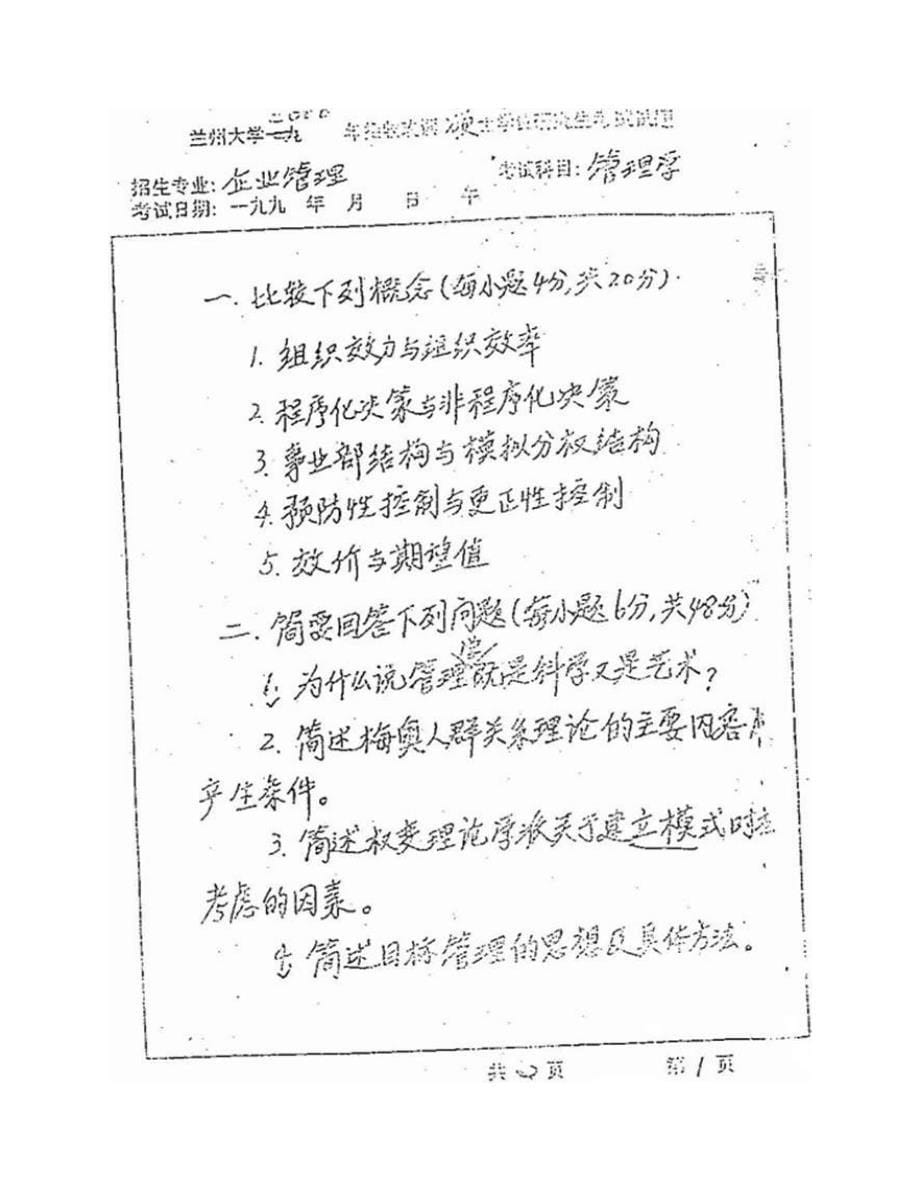 兰州大学 2000 年招收攻读硕士学位研究生考试试题
招生专业: 企业管理 考试科目: 管理学
考试日期: 一九九 年 月 日 午
一. 比较下列概念(每小题4分,共20分).
1. 组织效力与组织效率
2. 程序化决策与非程序化决策
3. 事业部结构与模拟分权结构
4. 预防性控制与更正性控制
5. 效价与期望值
二. 简要回答下列问题(每小题6分,共48分)
1. 为什么说管理既是科学又是艺术?
2. 简述梅奥人群关系理论的主要内容
产生条件。
3. 简述权变理论学派关于建立模式时
考虑的因素。
4. 简述目标管理的思想及具体方法。
共 页 第 1 页